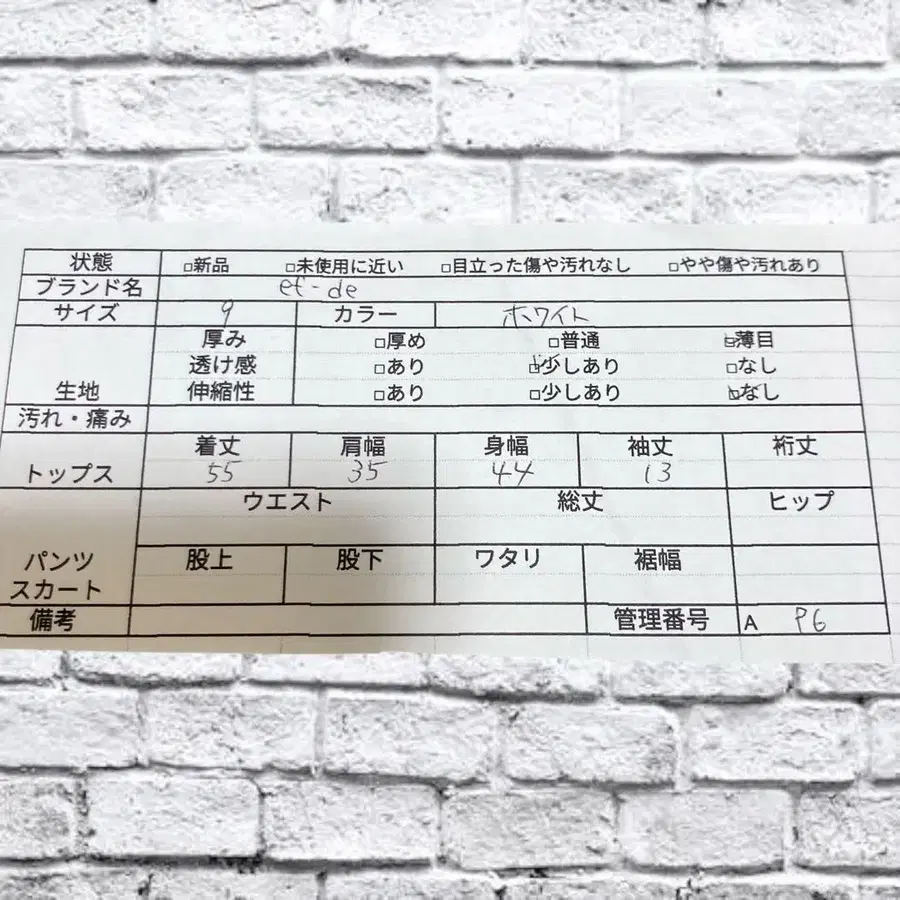 状態 □新品 □未使用に近い □目立った傷や汚れなし □やや傷や汚れあり
ブランド名 ef-de
サイズ 9 カラー ホワイト
厚み □厚め □普通 ☑薄目
透け感 □あり ☑少しあり □なし
生地 伸縮性 □あり □少しあり ☑なし
汚れ・痛み
着丈 肩幅 身幅 袖丈 裄丈
トップス 55 35 44 13
ウエスト 総丈 ヒップ
パンツ 股上 股下 ワタリ 裾幅
スカート
備考 管理番号 A P6